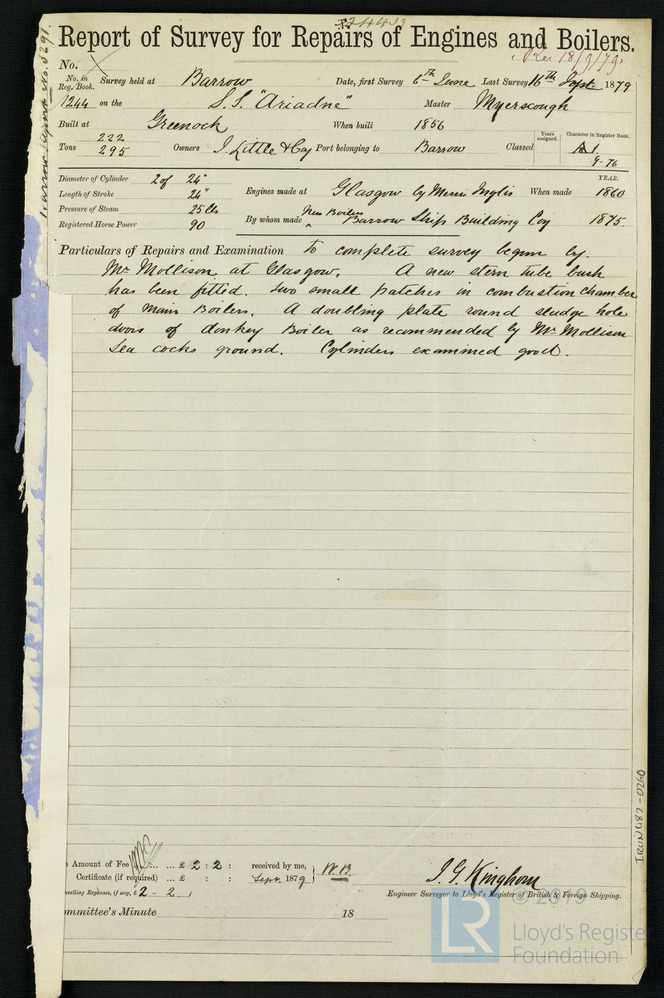 Report of Survey for Repairs of Engines and Boilers.
No.
No. in Reg. Book. Survey held at Barrow Date, first Survey 6th June Last Survey 16th Sept 1879
1244 on the S.S. "Ariadne" Master Myerscough
Built at Greenock When built 1856
Years assigned. Character in Register Book.
Tons 222 295 Owners J. Little & Coy Port belonging to Barrow Classed A 1 9-76
Diameter of Cylinder 2 of 24"
Length of Stroke 24"
Pressure of Steam 25 lbs
Registered Horse Power 90
YEAR.
Engines made at Glasgow by Messrs Inglis When made 1860
By whom made New Boilers Barrow Ship Building Coy 1875.
Particulars of Repairs and Examination To complete survey begun by
Mr Mollison at Glasgow. A new stern tube bush
has been fitted. Two small patches in combustion chamber
of Main Boilers. A doubling plate round sludge hole
doors of donkey Boiler as recommended by Mr Mollison
Sea cocks ground. Cylinders examined good.
Amount of Fee ... £ 2 : 2 : received by me,
Certificate (if required) ... £ : : Sept. 1879 W.B.
Travelling Expenses, if any, £ 2 - 2
J. G. Kinghorn
Engineer Surveyor to Lloyd's Register of British & Foreign Shipping.
Committee's Minute 18
IRON487-0260
© 2019
LR
Lloyd's Register
Foundation